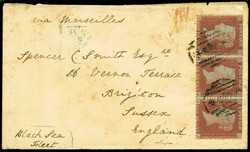 via Marseilles
Spencer C Smith Esqre
16 Vernon Terrace
Brighton
Sussex
England
Black Sea
Fleet